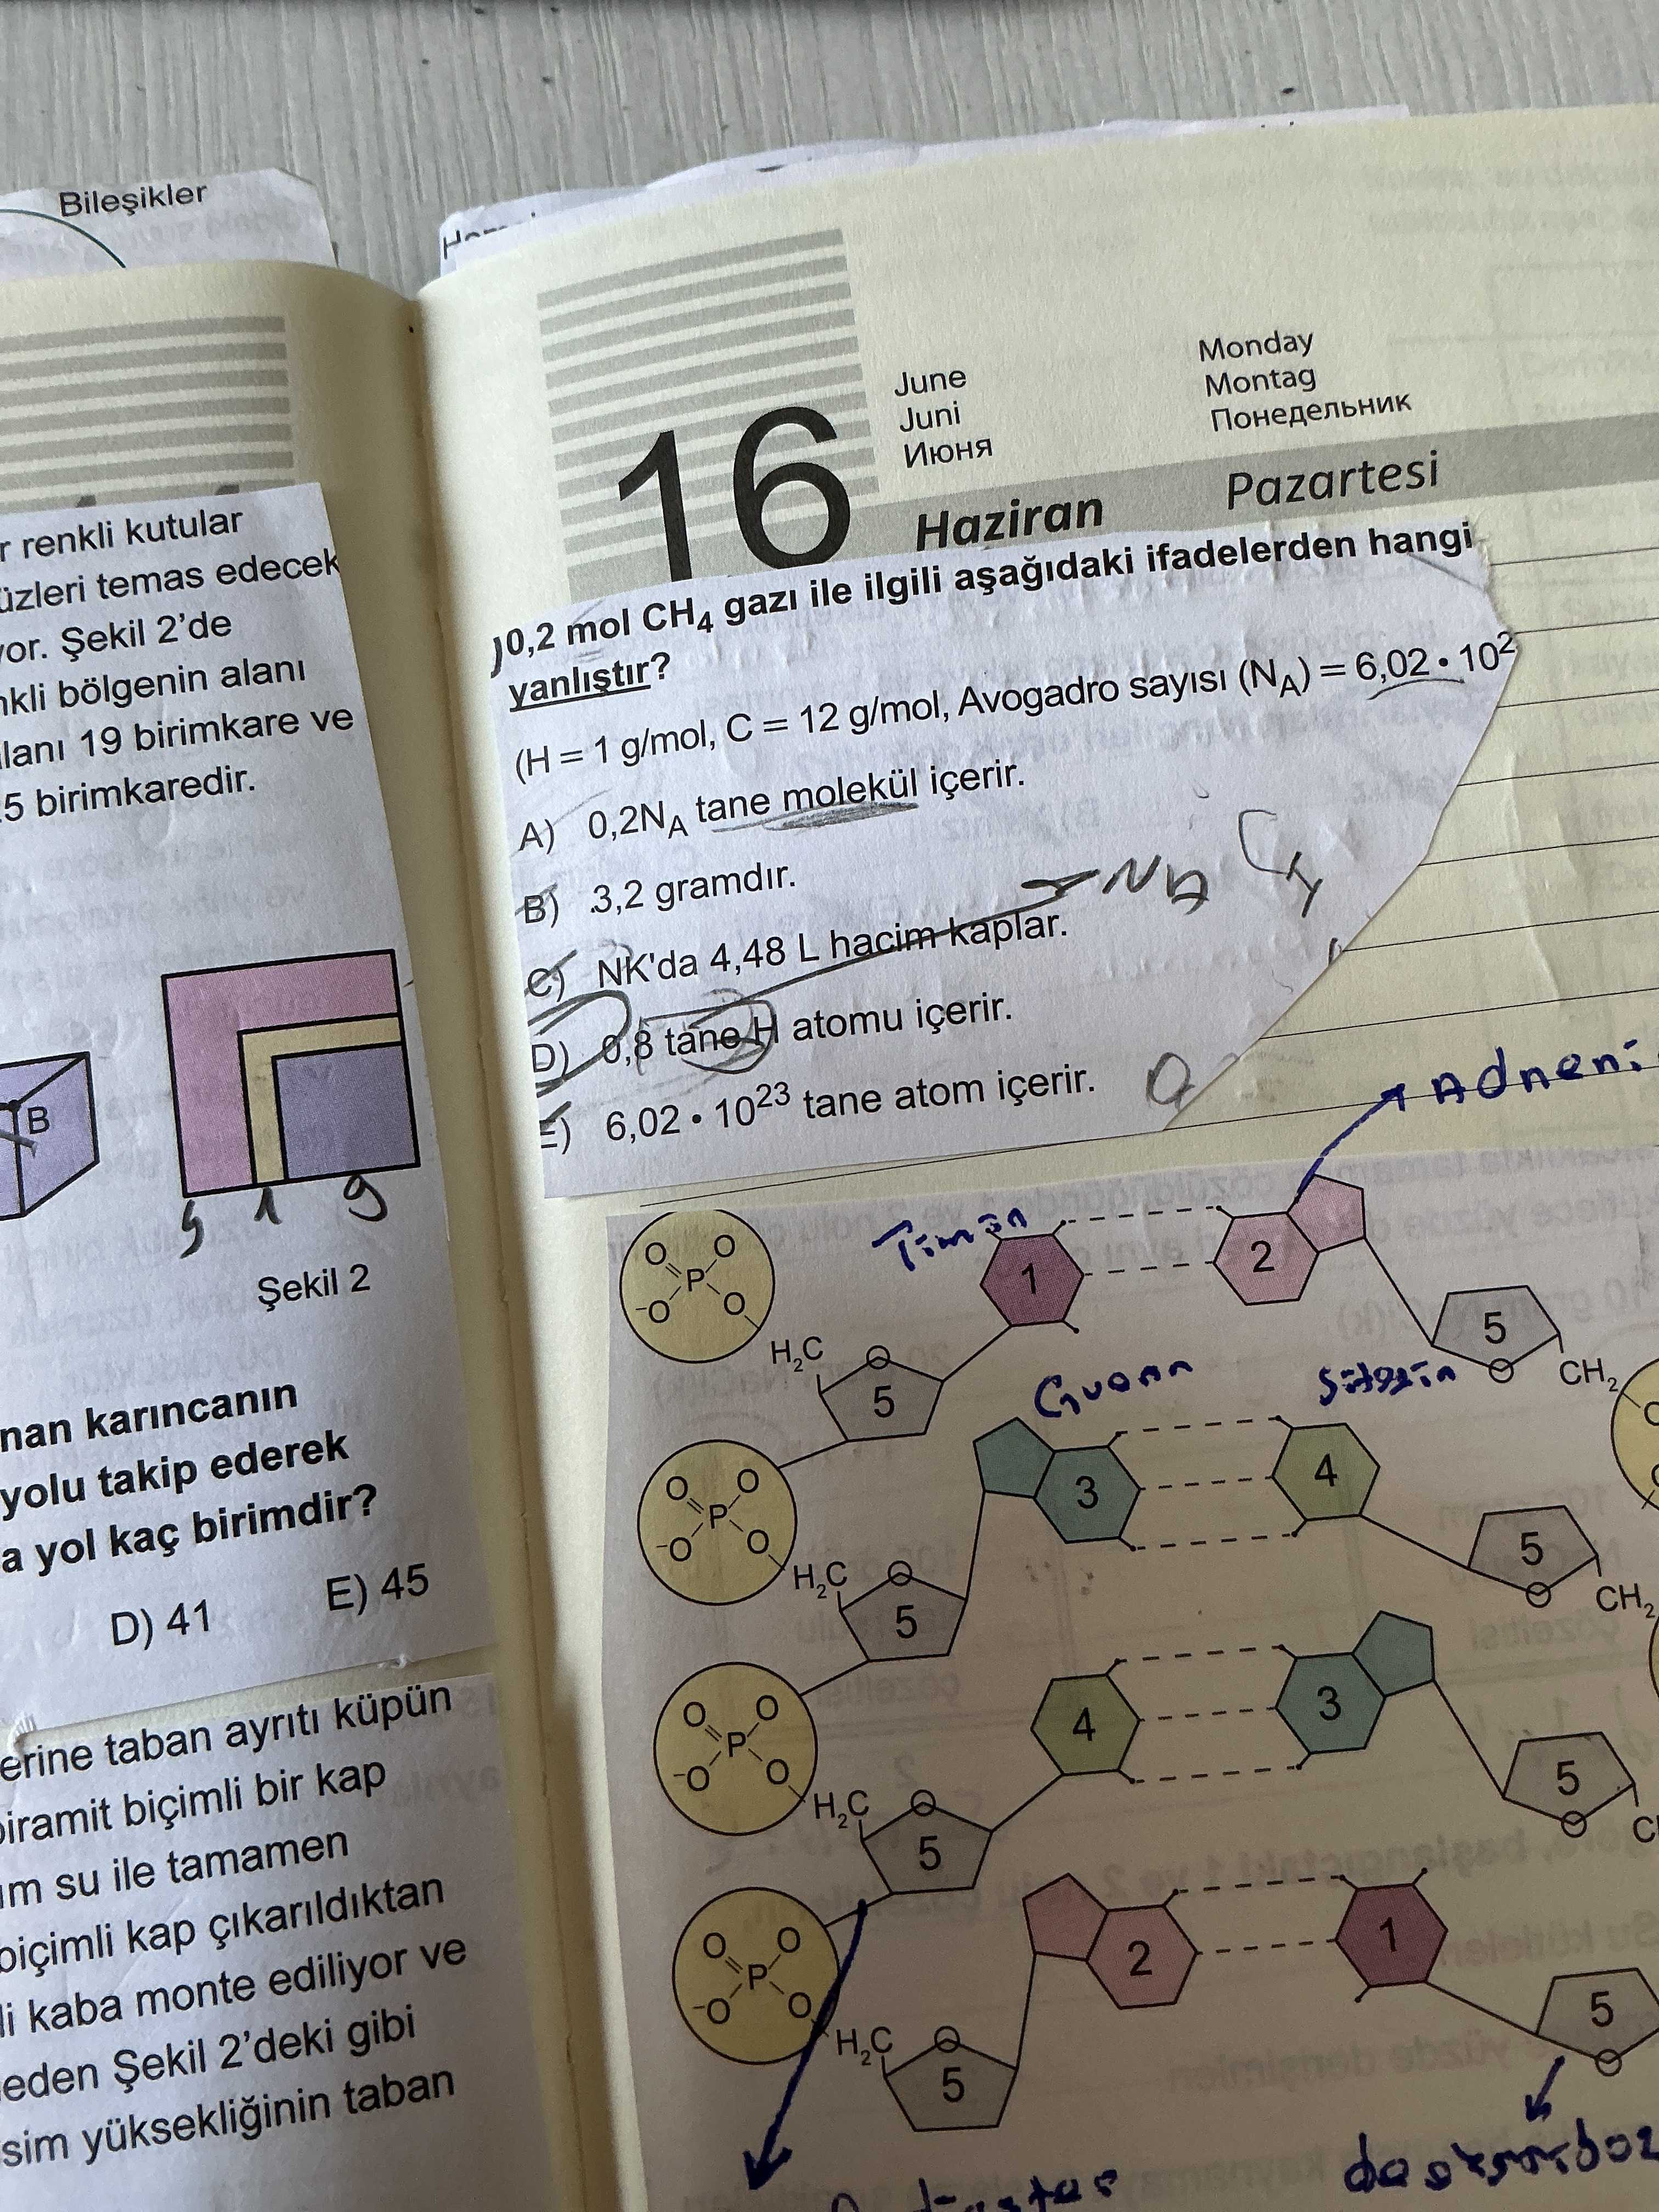 Bileşikler
r renkli kutular
üzleri temas edecek
yor. Şekil 2'de
nkli bölgenin alanı
lanı 19 birimkare ve
5 birimkaredir.
B
5 1 9
Şekil 2
nan karıncanın
yolu takip ederek
a yol kaç birimdir?
D) 41 E) 45
erine taban ayrıtı küpün
piramit biçimli bir kap
ım su ile tamamen
biçimli kap çıkarıldıktan
li kaba monte ediliyor ve
eden Şekil 2'deki gibi
sim yüksekliğinin taban
16
June
Juni
Июня
Haziran
Monday
Montag
Понедельник
Pazartesi
0,2 mol CH4 gazı ile ilgili aşağıdaki ifadelerden hangi
yanlıştır?
(H = 1 g/mol, C = 12 g/mol, Avogadro sayısı (NA) = 6,02 • 102
A) 0,2NA tane molekül içerir.
B) 3,2 gramdır.
C) NK'da 4,48 L hacim kaplar.
NA
D) 0,8 tane H atomu içerir.
E) 6,02 • 10²³ tane atom içerir.
Adneni
Timin
O O P ⁻O O
1 2
H2C 5
5 CH2
Guann Sitozin
O O P ⁻O O
3 4
H2C 5
5 CH2
O O P ⁻O O
4 3
H2C 5
5 C
O O P ⁻O O
2 1
H2C 5
5